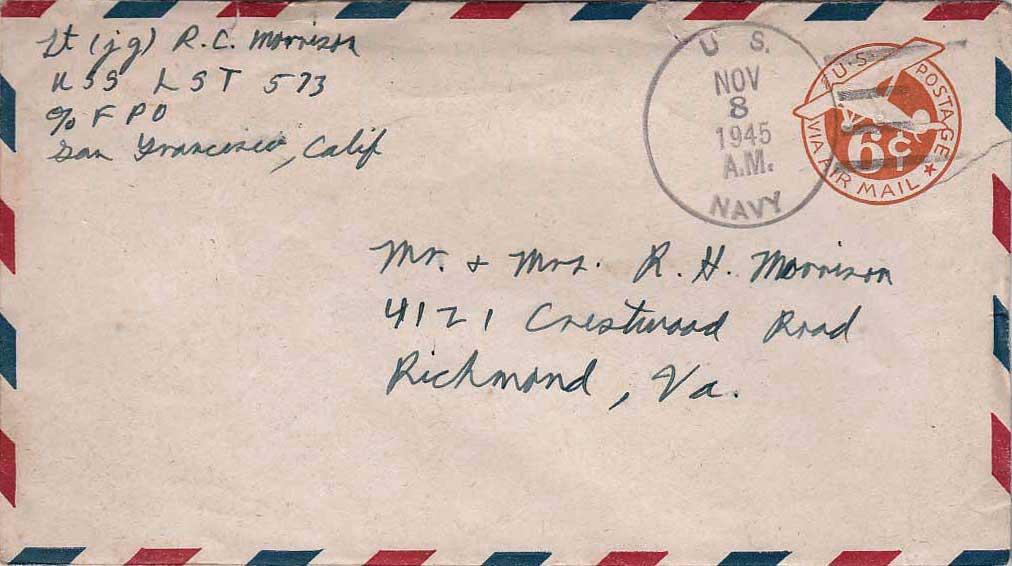 Lt (jg) R.C. Morrison
USS LST 573
c/o F P O
San Francisco, Calif
U S.
NOV
8
1945
A.M.
NAVY
U.S. POSTAGE
6¢
VIA AIR MAIL
Mr. + Mrs. R. H. Morrison
4121 Crestwood Road
Richmond, Va.